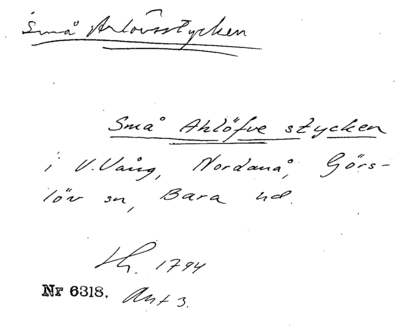 Små Arlövsstycken
Små Ahlöfve stycken
i V.Vång, Nordanå, Görs-
löv sn, Bara hd.
Lh. 1794
Nr 6318. Ant 3.